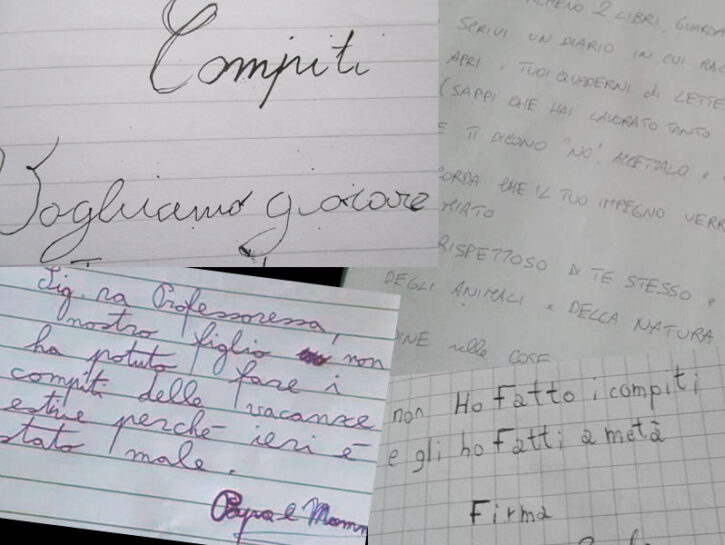 Compiti
Vogliamo giocare
MENO 2 LIBRI, GUARDA
SCRIVI UN DIARIO IN CUI RAC
APRI I TUOI QUADERNI di LETTE
(SAPPI CHE HAI LAVORATO TANTO
E TI DICONO "NO", ACCETTALO E
CORDA CHE IL TUO IMPEGNO VERR
MIATO
RISPETTOSO DI TE STESSO E
DEGLI ANIMALI E DELLA NATURA
DINE nelle COSE
Sig.ra Professoressa,
nostro figlio non
ha potuto fare i
compiti delle vacanze
estive perché ieri è
stato male.
Papa e Mamm
non Ho Fatto i compiti
e gli ho Fatti a metà
Firma